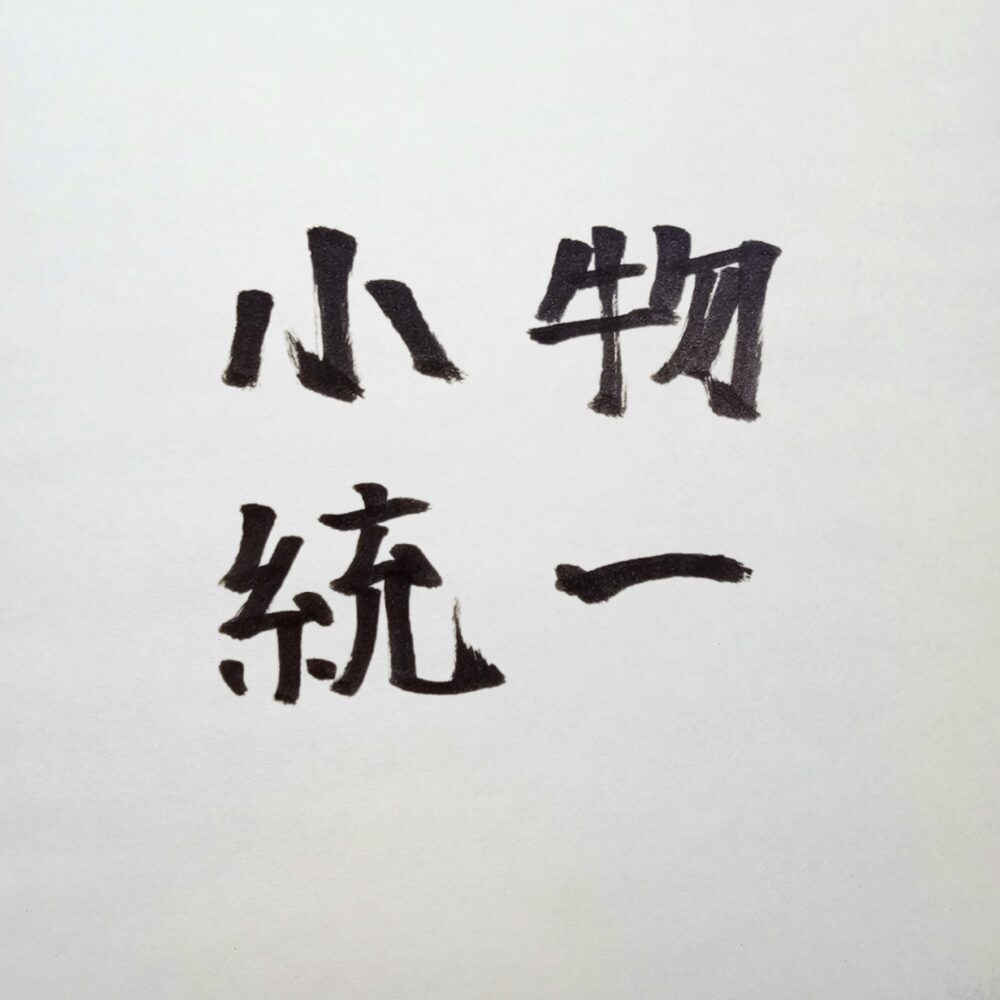 小物
統一